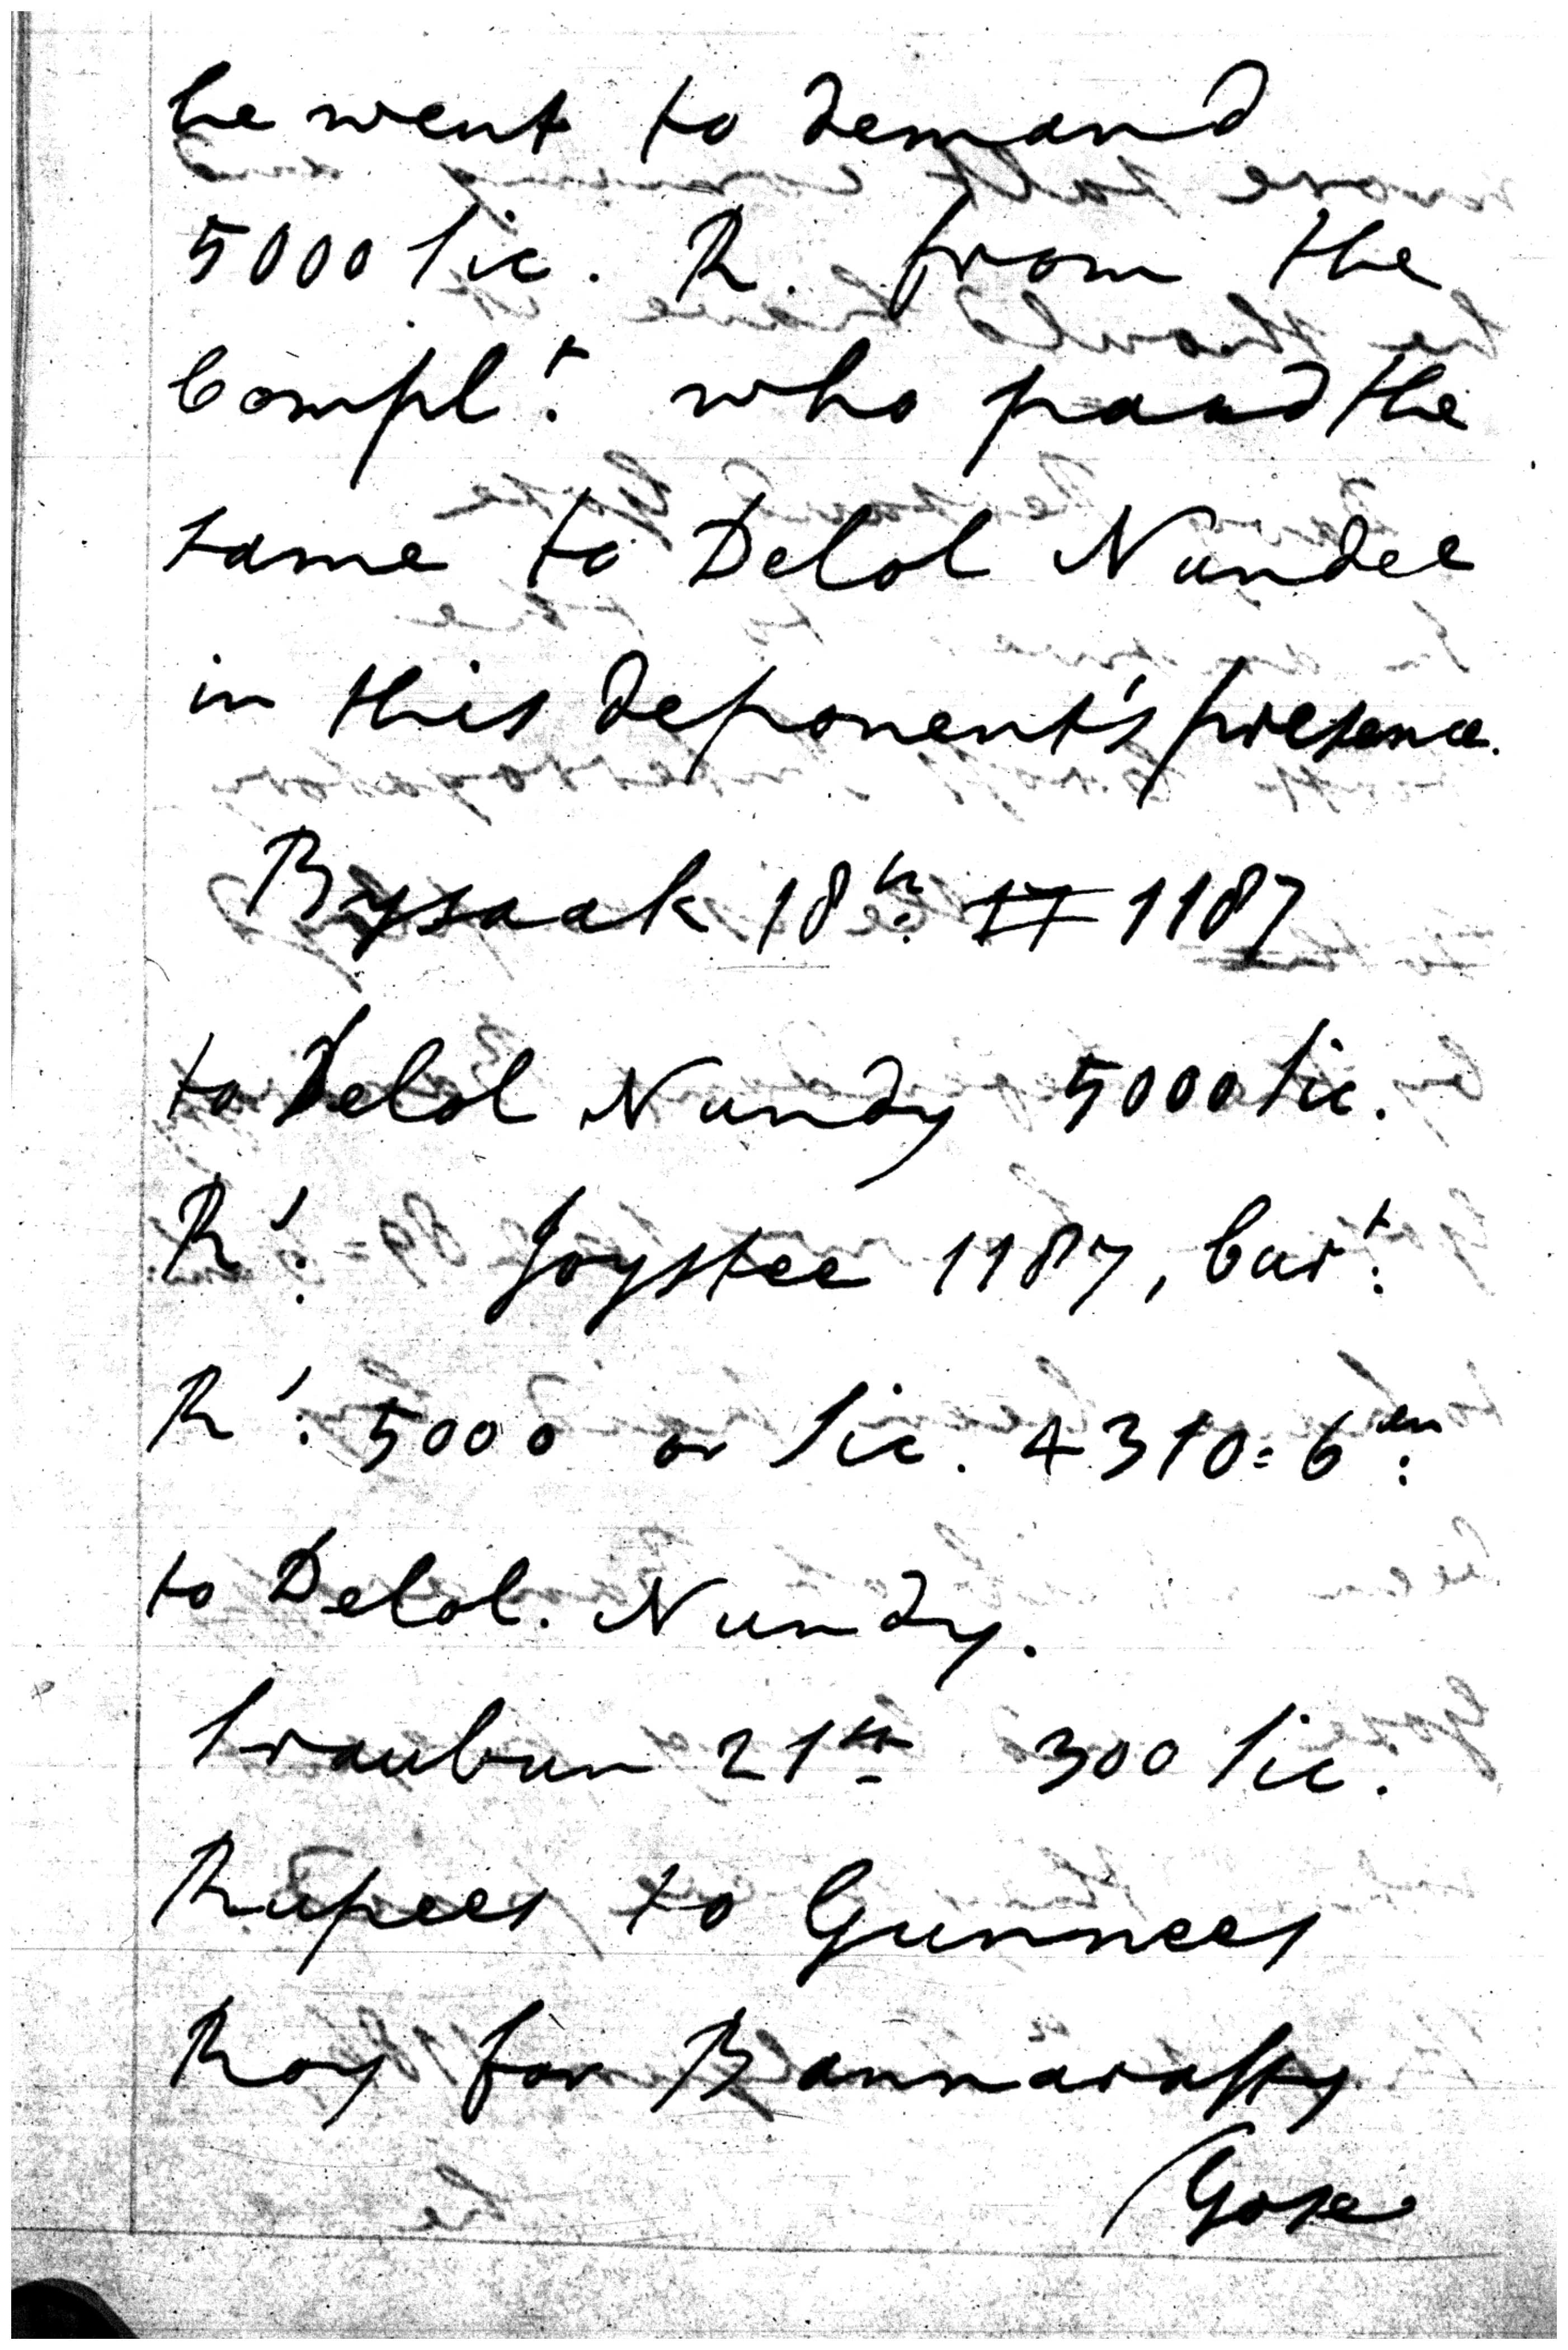 he went to demand
5000 Sic. R. from the
Compl.t who paid the
same to Delol Nundee
in this deponent's presence.
Bysaak 18th 1187
to Delol Nundy 5000 Sic.
R.s Joystee 1187, Cur.t
R.s 5000 or Sic. 4310=6 an:
to Delol. Nundy.
Sraubun 21st 300 Sic.
Rupees to Gunnees
Roy for Bannarassy
Gose